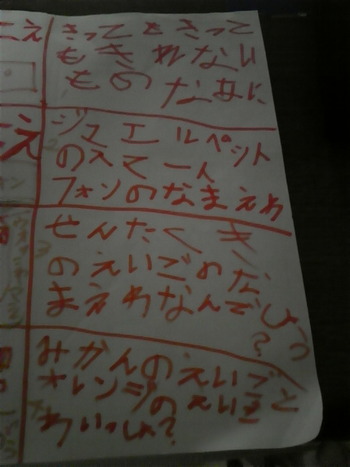 こえ
きってもきって
もきれない
ものなあに
こえ
ジュエルペット
のスマート
フォンのなまえわ
せんたくき
のえいごのな
まえわなんでしょう?
みかんのえいごと
オレンジのえいご
わいっしょ?